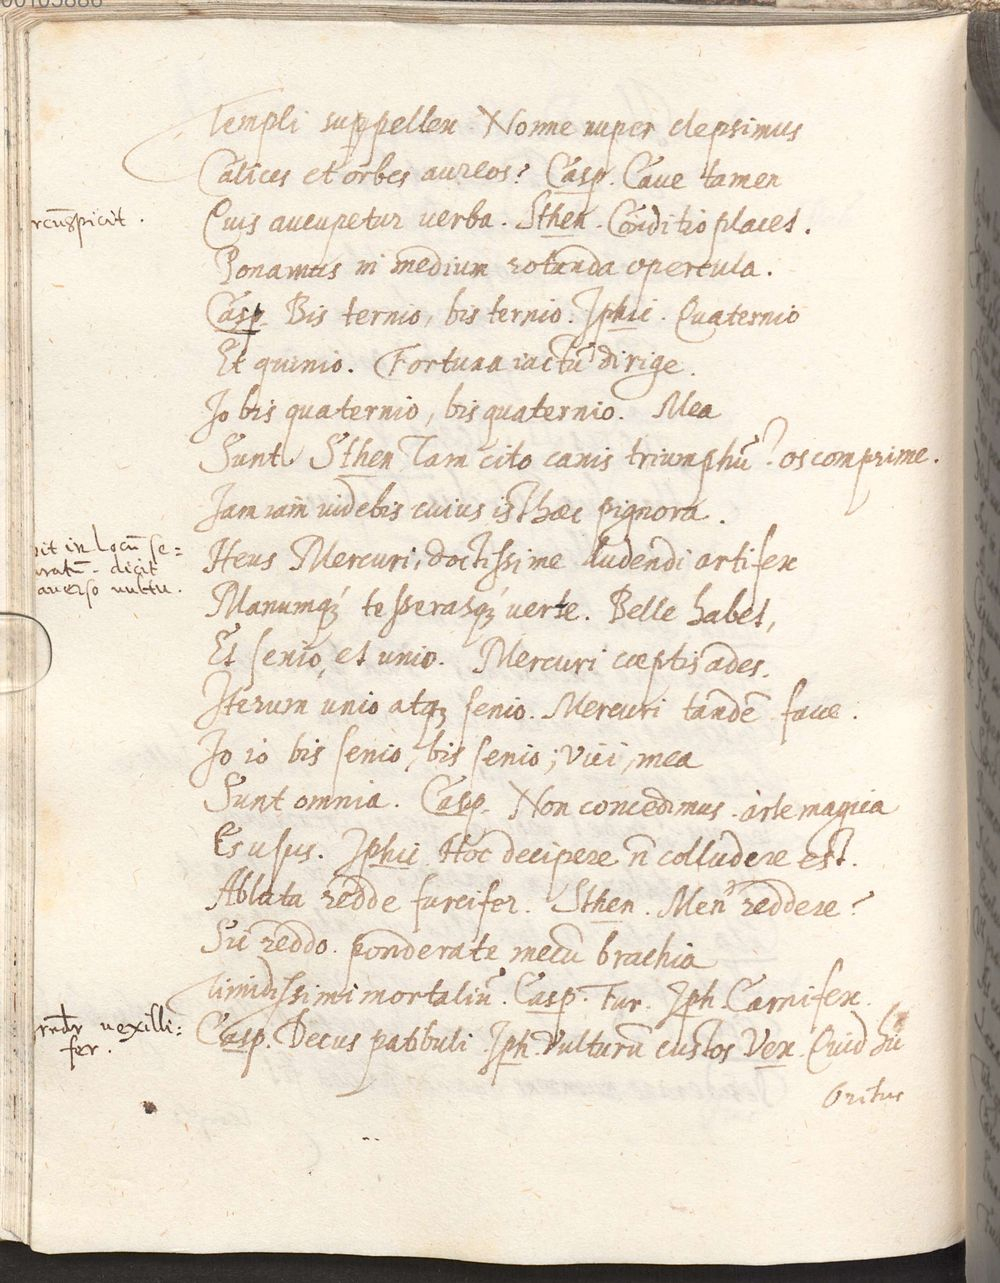 Templi suppellex. Nonne nuper clepsimus
Calices et orbes aureos? Casp. Caue tamen
rcũspicit.
Quis aucupetur uerba. Sthen. Conditio placet.
Ponamus in medium rotunda opercula.
Casp. Bis ternio, bis ternio. Iphic. Quaternio
Et quinio. Fortuna iactũ dirige.
Io bis quaternio, bis quaternio. Mea
Sunt. Sthen Tam cito canis triumphũ? os comprime.
Jam iam uidebis cuius isthaec pignora.
it in locũ se=
aratũ. dicit
auerso uultu.
Heus Mercuri, doctissime ludendi artifex
Manumq́; tesserasq́; uerte. Belle habet,
Et senio, et unio. Mercuri coeptis ades.
Iterum unio atq; senio. Mercuri tandẽ faue.
Io io bis senio, bis senio; vici, mea
Sunt omnia. Casp. Non concedimus. arte magica
Es usus. Iphic Hoc decipere ñ colludere est.
Ablata redde furcifer. Sthen. Men' reddere?
Sũ reddo. ponderate mecũ brachia
timidissimi mortaliũ. Casp. Fur. Iph. Carnifex.
uexilli=
fer.
Casp. Decus patibuli. Iph. Vulturũ custos Vex. Quid hũ